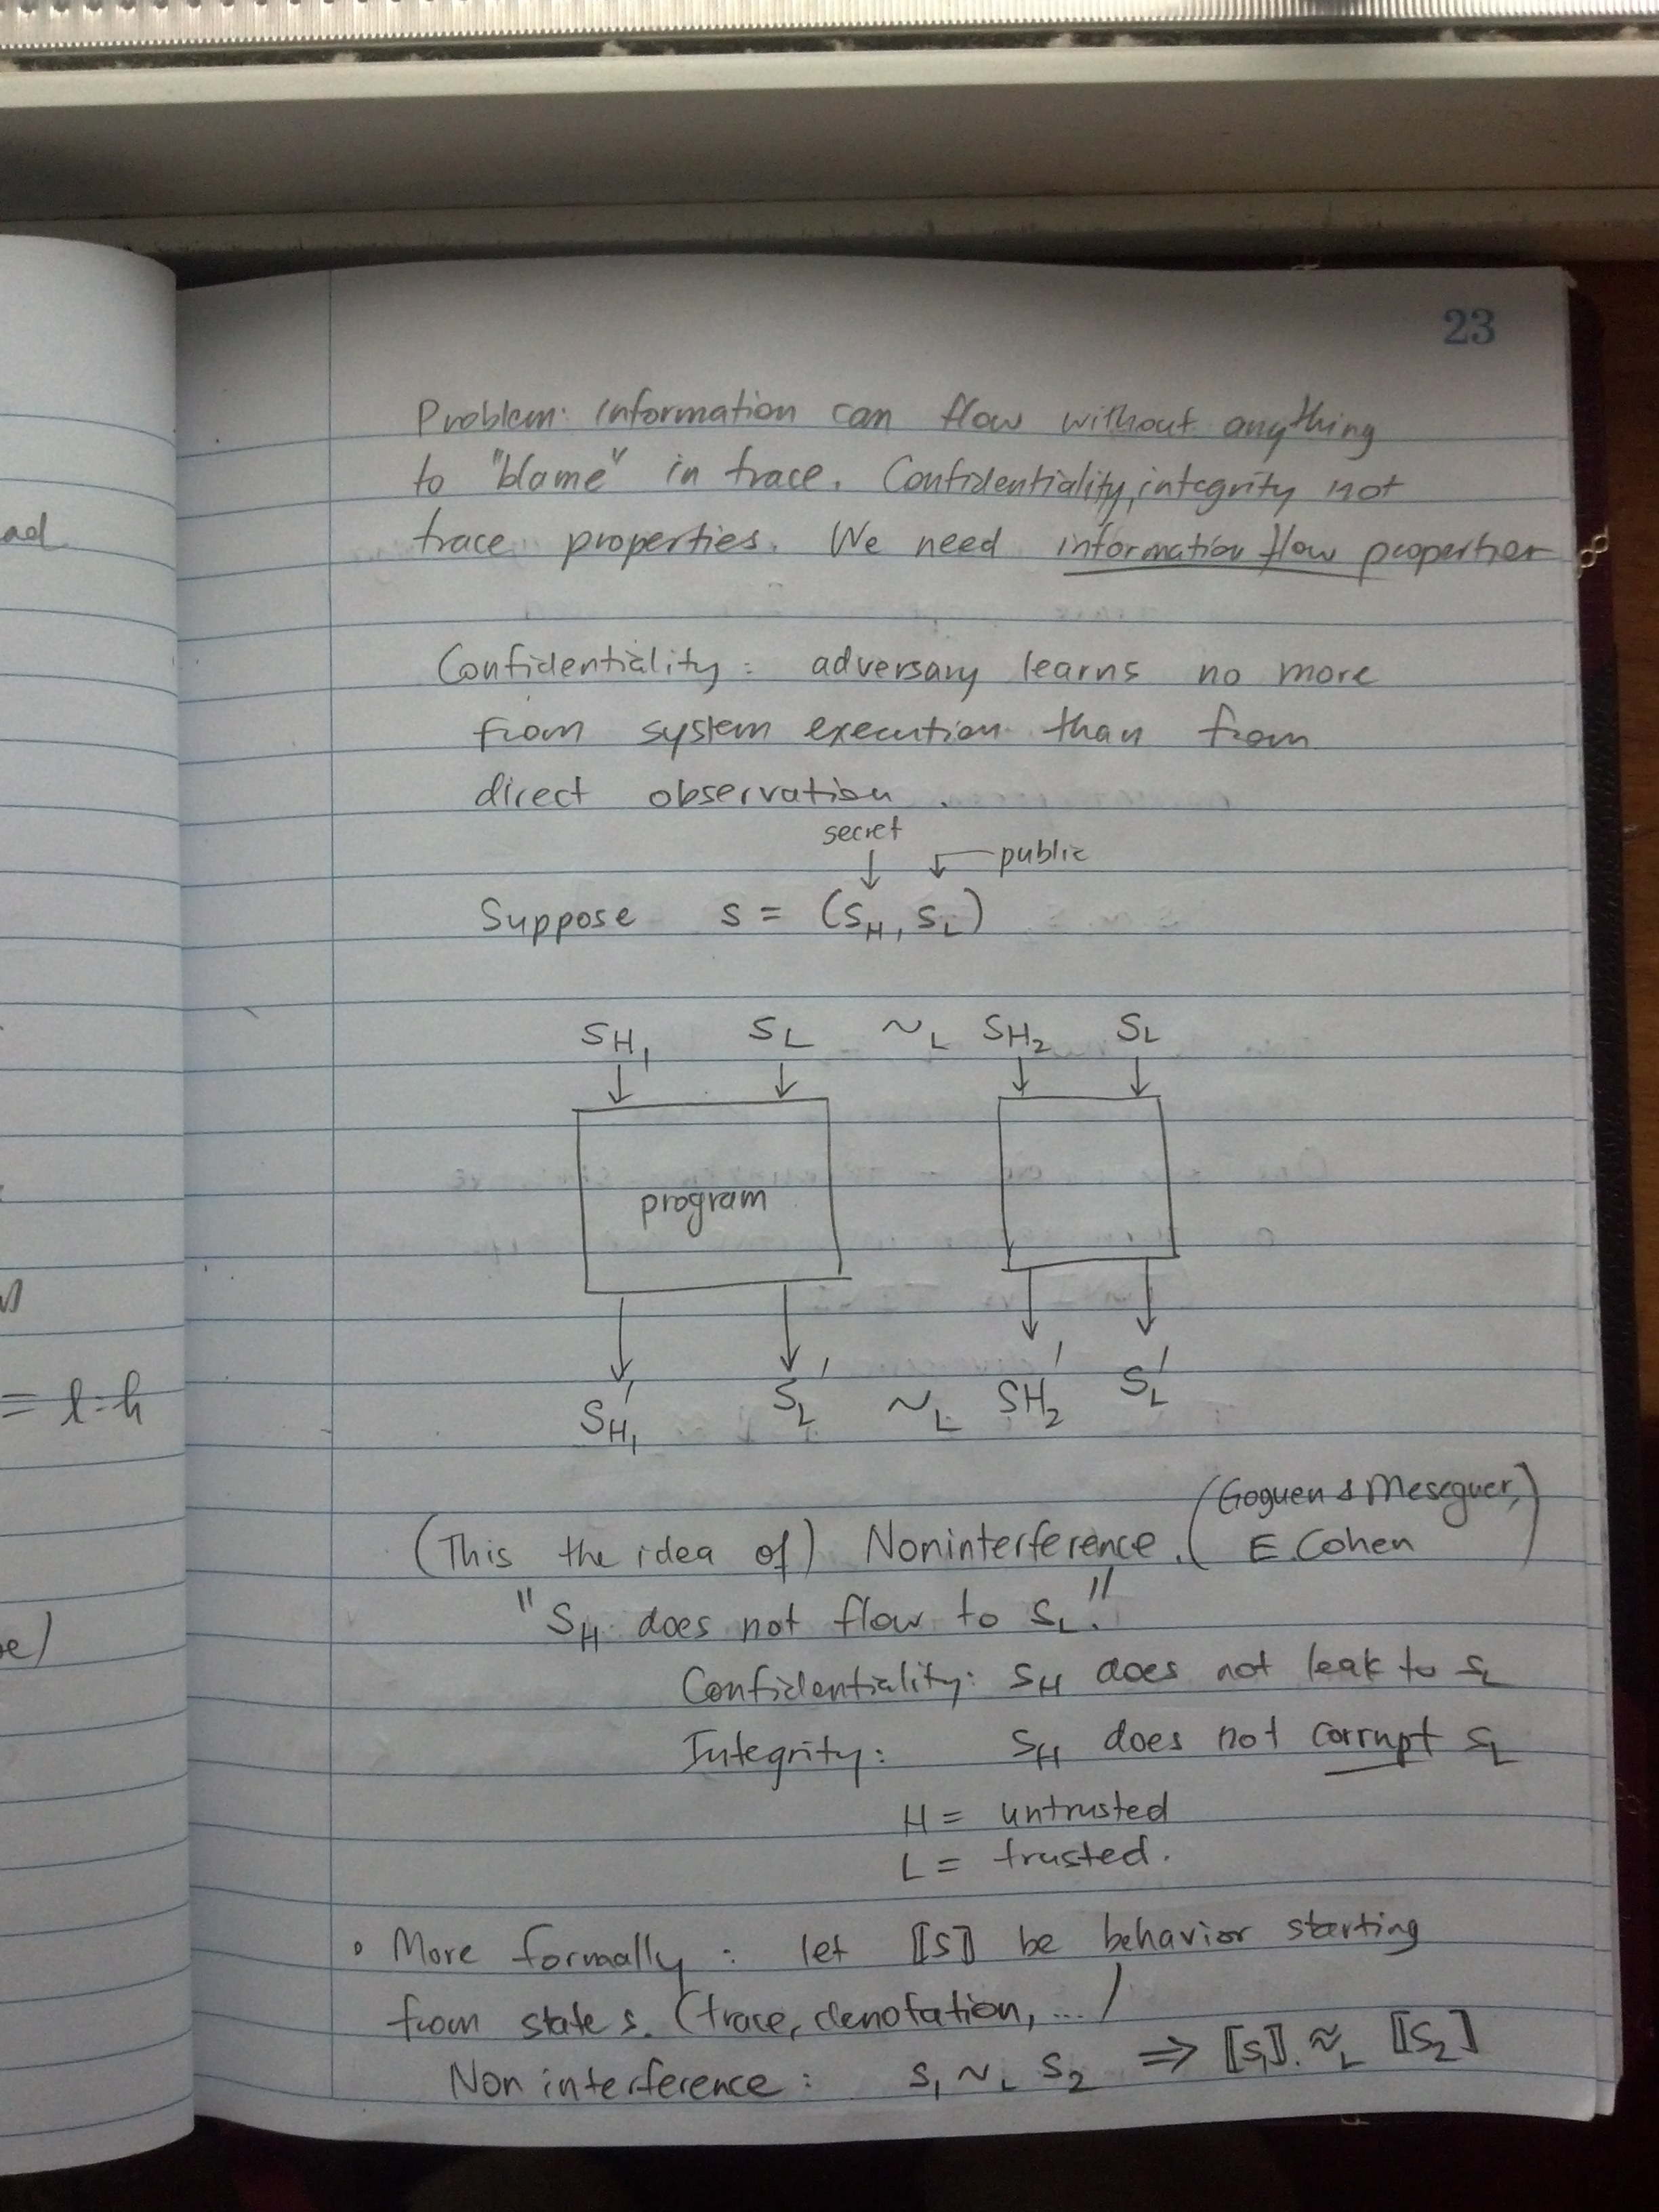 23
Problem: Information can flow without anything
to "blame" in trace. Confidentiality, integrity not
trace properties. We need information flow properties
Confidentiality: adversary learns no more
from system execution than from
direct observation.
secret
public
Suppose s = (S_H, S_L)
S_H₁ S_L ~_L S_H₂ S_L
program
S_H₁' S_L' ~_L S_H₂' S_L'
(Goguen & Meseguer,
(This the idea of) Noninterference. E. Cohen)
"S_H does not flow to S_L."
Confidentiality: S_H does not leak to S_L
Integrity: S_H does not corrupt S_L
H = untrusted
L = trusted.
• More formally: let ⟦S⟧ be behavior starting
from state s. (trace, denotation, ...)
Noninterference: S₁ ~_L S₂ ⇒ ⟦S₁⟧ ≈_L ⟦S₂⟧
ad
= l=h